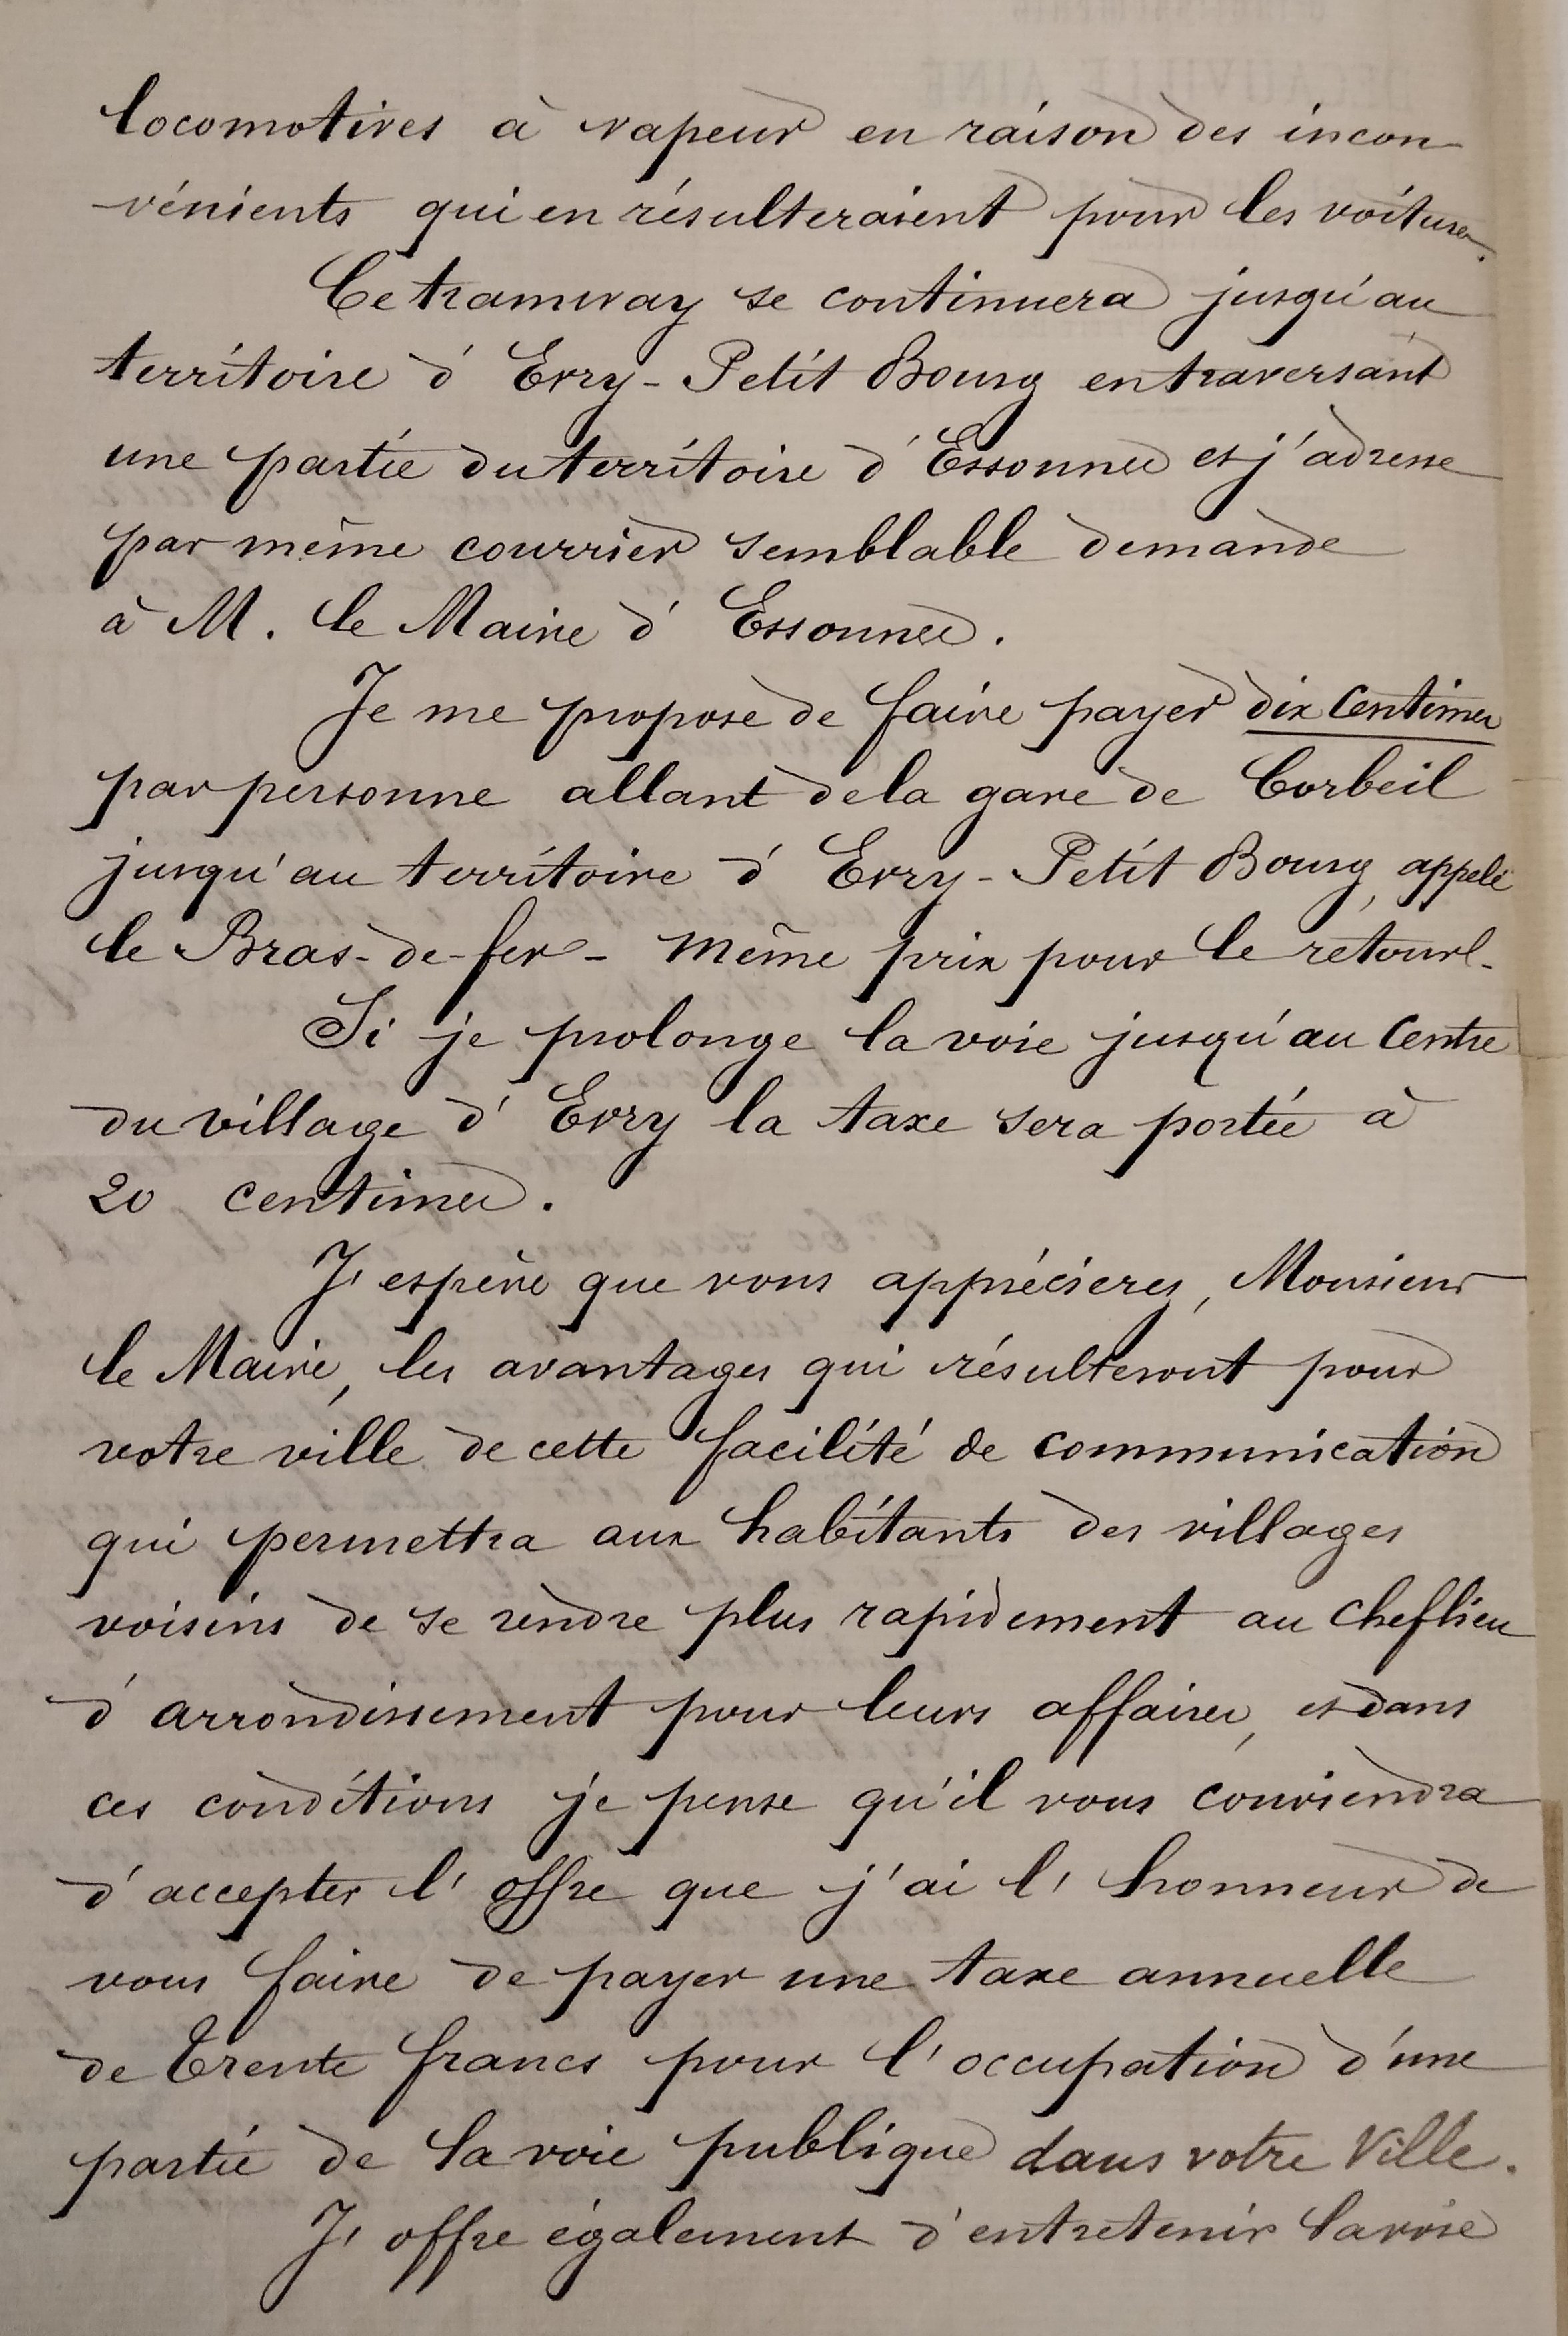 locomotives à vapeur en raison des incon-
vénients qui en résulteraient pour les voitures.
Ce tramway se continuera jusqu'au
territoire d'Evry-Petit Bourg en traversant
une partie du territoire d'Essonnes et j'adresse
par même courrier semblable demande
à M. le Maire d'Essonnes.
Je me propose de faire payer dix centimes
par personne allant de la gare de Corbeil
jusqu'au territoire d'Evry-Petit Bourg, appelé
le Bras-de-fer - même prix pour le retour -
Si je prolonge la voie jusqu'au centre
du village d'Evry la taxe sera portée à
20 centimes.
J'espère que vous apprécierez, Monsieur
le Maire, les avantages qui résulteront pour
votre ville de cette facilité de communication
qui permettra aux habitants des villages
voisins de se rendre plus rapidement au cheflieu
d'arrondissement pour leurs affaires, et dans
ces conditions je pense qu'il vous conviendra
d'accepter l'offre que j'ai l'honneur de
vous faire de payer une taxe annuelle
de trente francs pour l'occupation d'une
partie de la voie publique dans votre Ville.
J'offre également d'entretenir la voie